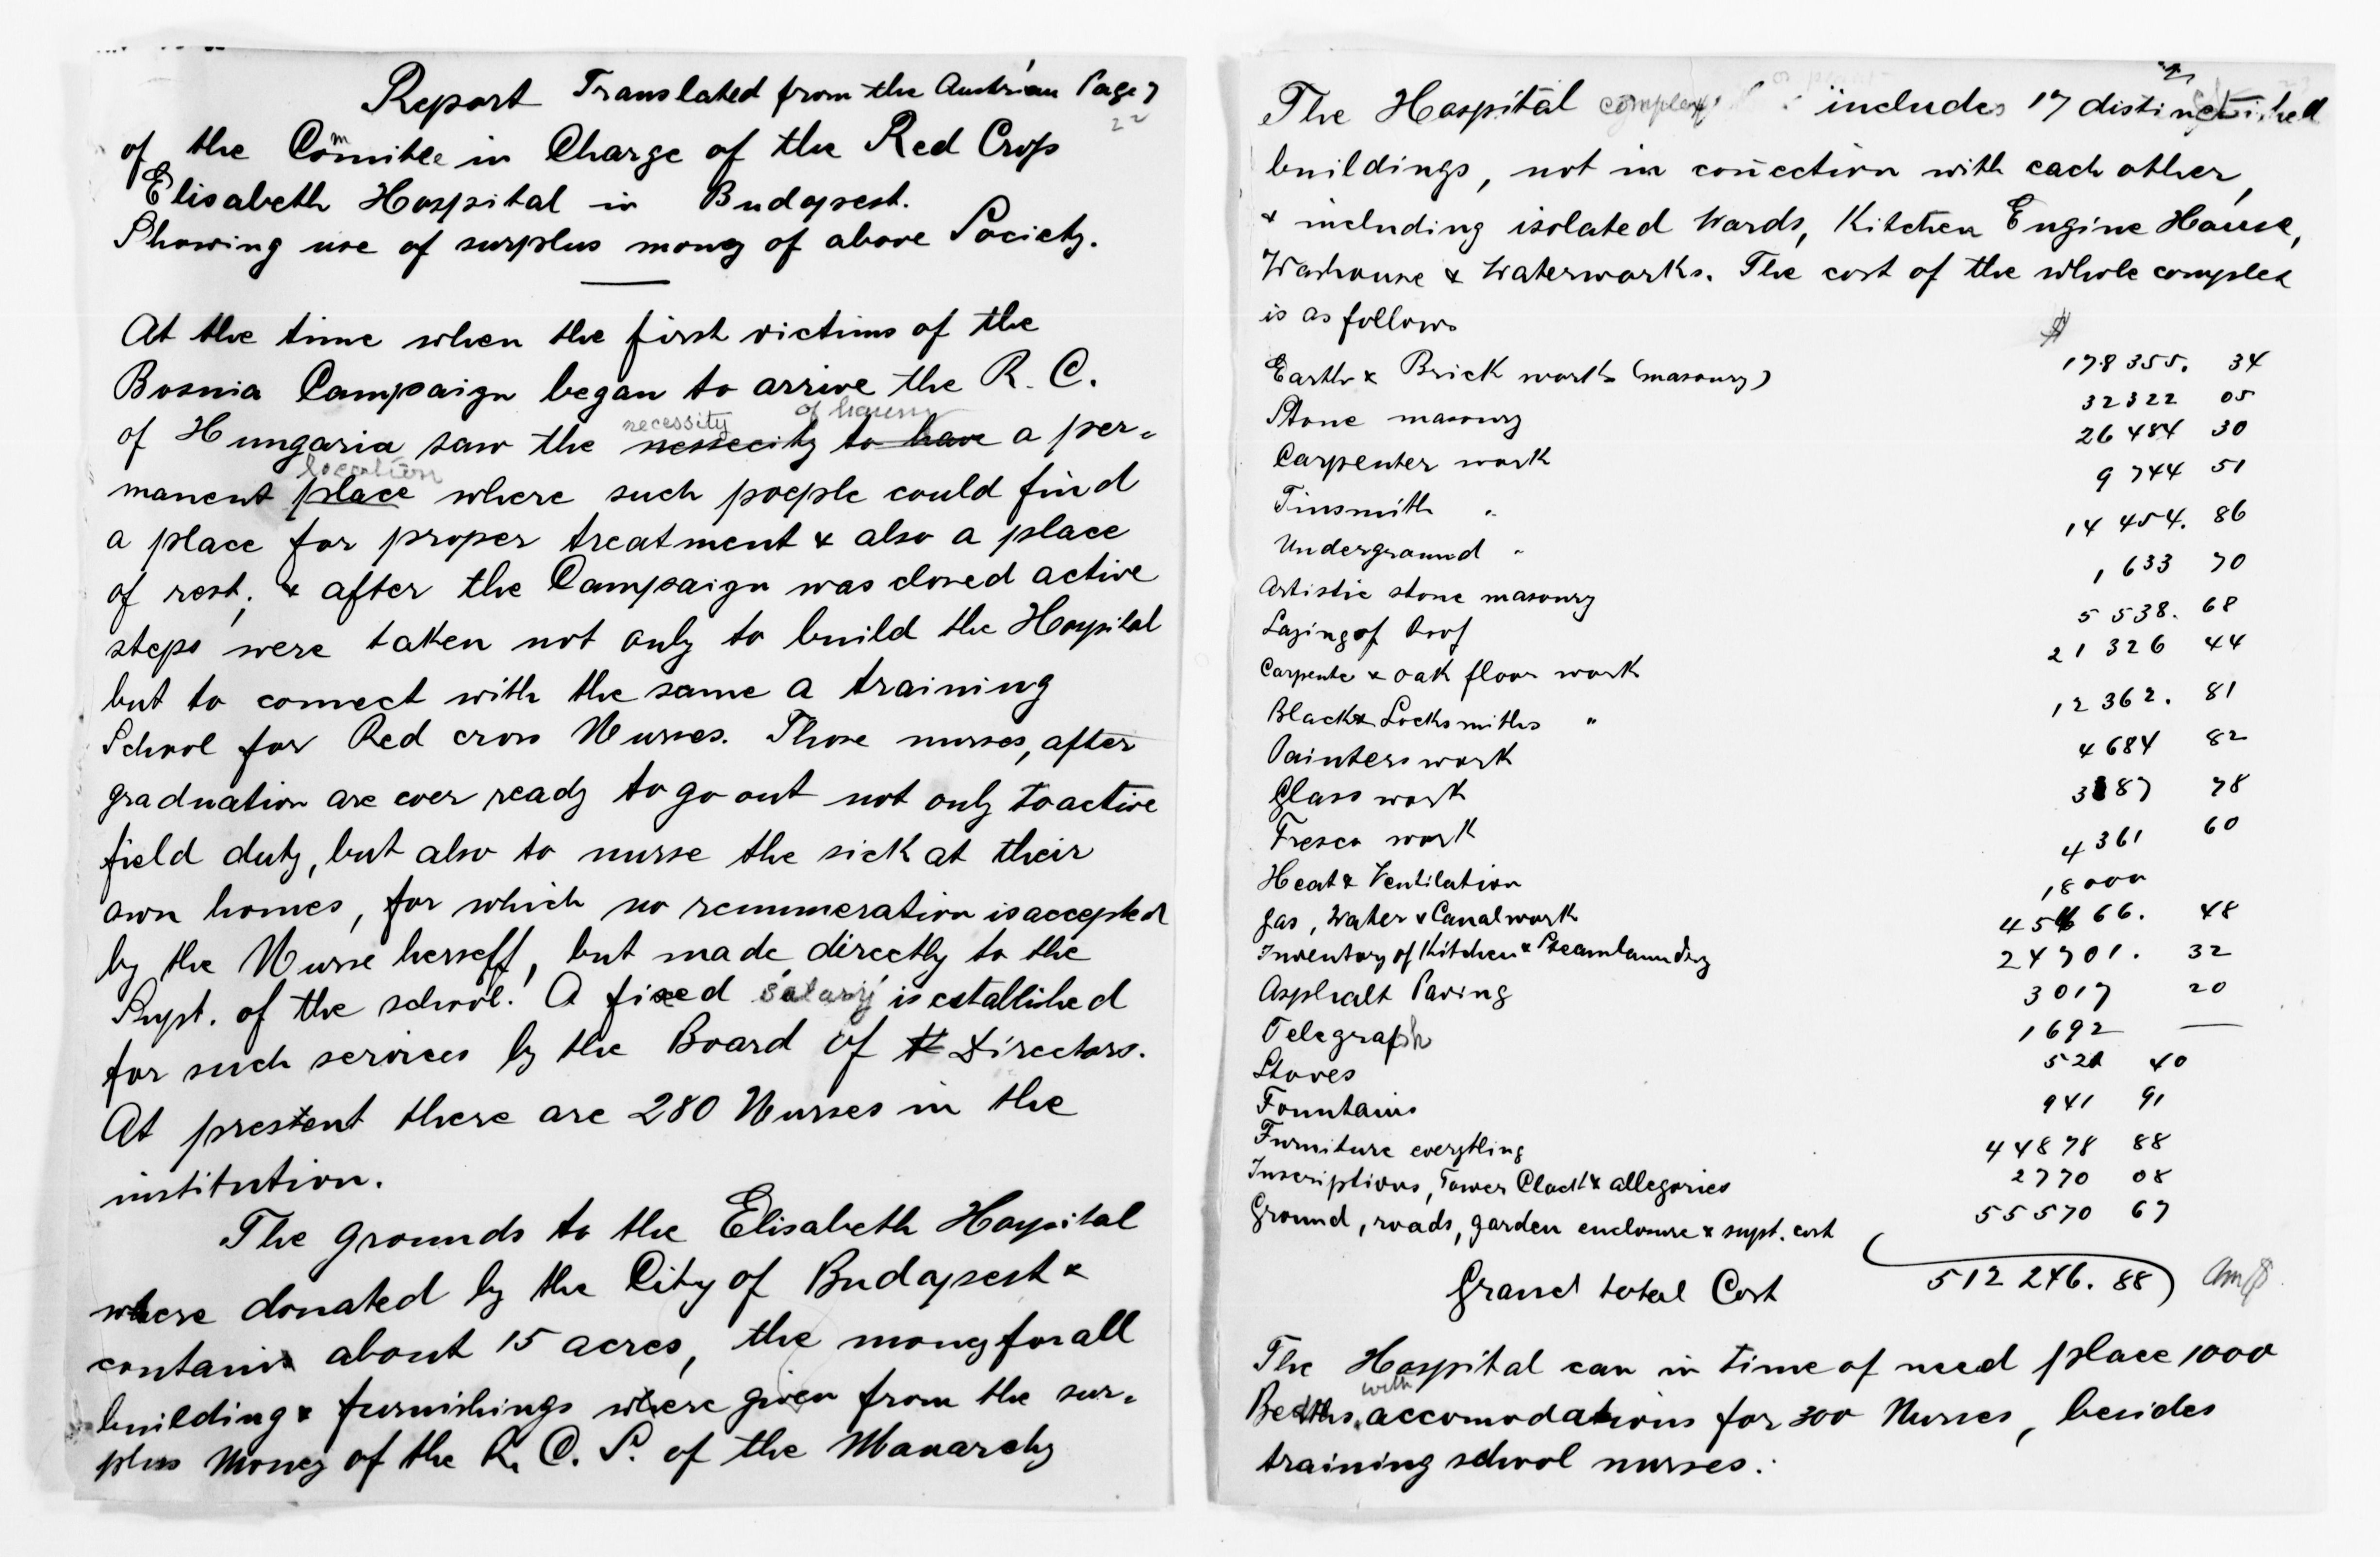 Report Translated from the Austrian Page 7
22
of the Committee in Charge of the Red Cross
Elisabeth Hospital in Budapest.
Showing use of surplus mony of above Society.
At the time when the first victims of the
Bosnia Campaign began to arrive the R. C.
necessity of having
of Hungaria saw the nessecity to have a per-
location
manent place where such poeple could find
a place for proper treatment & also a place
of rest; & after the Campaign was closed active
steps were taken not only to build the Hospital
but to connect with the same a training
School for Red cross Nurses. Those nurses, after
graduation are ever ready to go out not only to active
field duty, but also to nurse the sick at their
own homes, for which no remuneration is accepted
by the Nurse herself, but made directly to the
Supt. of the school. A fixed salary is established
for such services by the Board of Directors.
At present there are 280 Nurses in the
institution.
The grounds to the Elisabeth Hospital
where donated by the City of Budapest &
contains about 15 acres, the mony for all
building & furnishings where given from the sur-
plus Money of the R. C. S. of the Monarchy
The Hospital complex includes 17 distinct
buildings, not in conection with each other,
& including isolated Wards, Kitchen Engine House,
Washouse & Waterworks. The cost of the whole complex
is as follows
$
Earth & Brick work (masonry) 178 355. 34
Stone masonry 32322 05
Carpenter work 26 484 30
Tinsmith " 9 744 51
Underground " 14 454. 86
Artistic stone masonry 1 633 70
Lazing of Roof 5 538. 68
Carpente & oak floor work 21 326 44
Black & Locksmiths " 12 362. 81
Painters work 4684 82
Glass work 3187 78
Fresco work 4361 60
Heat & Ventilation 18000
Gas, Water & Canal work 45666. 48
Inventory of Kitchen & Steamlaundry 24701. 32
Asphalt Paving 3017 20
Telegraph 1692 —
Stoves 521 40
Fountains 941 91
Furniture everything 44878 88
Inscriptions, Tower Clock & allegories 2770 08
Ground, roads, garden enclosure & supt. cost 55570 67
Grand total Cost 512 246. 88 Am $
The Hospital can in time of need place 1000
with
Beds accomodations for 300 Nurses, besides
training school nurses.